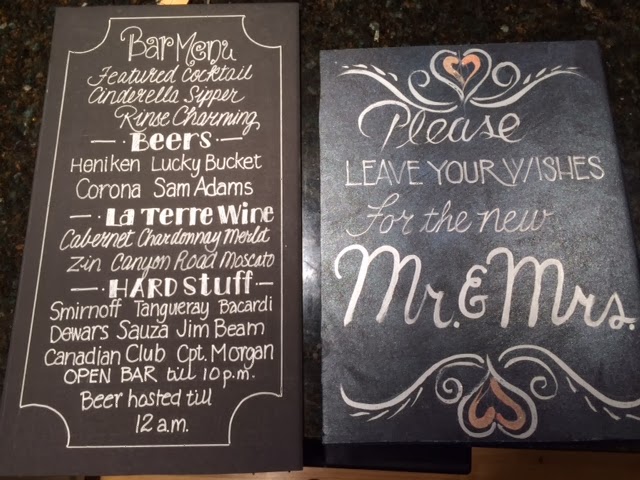 Bar Menu
Featured Cocktail
Cinderella Sipper
Rinse Charming
Beers
Heniken Lucky Bucket
Corona Sam Adams
La Terre Wine
Cabernet Chardonnay Merlot
Zin Canyon Road Moscato
HARD Stuff
Smirnoff Tangueray Bacardi
Dewars Sauza Jim Beam
Canadian Club Cpt. Morgan
OPEN BAR till 10 p.m.
Beer hosted till
12 a.m.
Please
LEAVE YOUR WISHES
For the new
Mr. & Mrs.